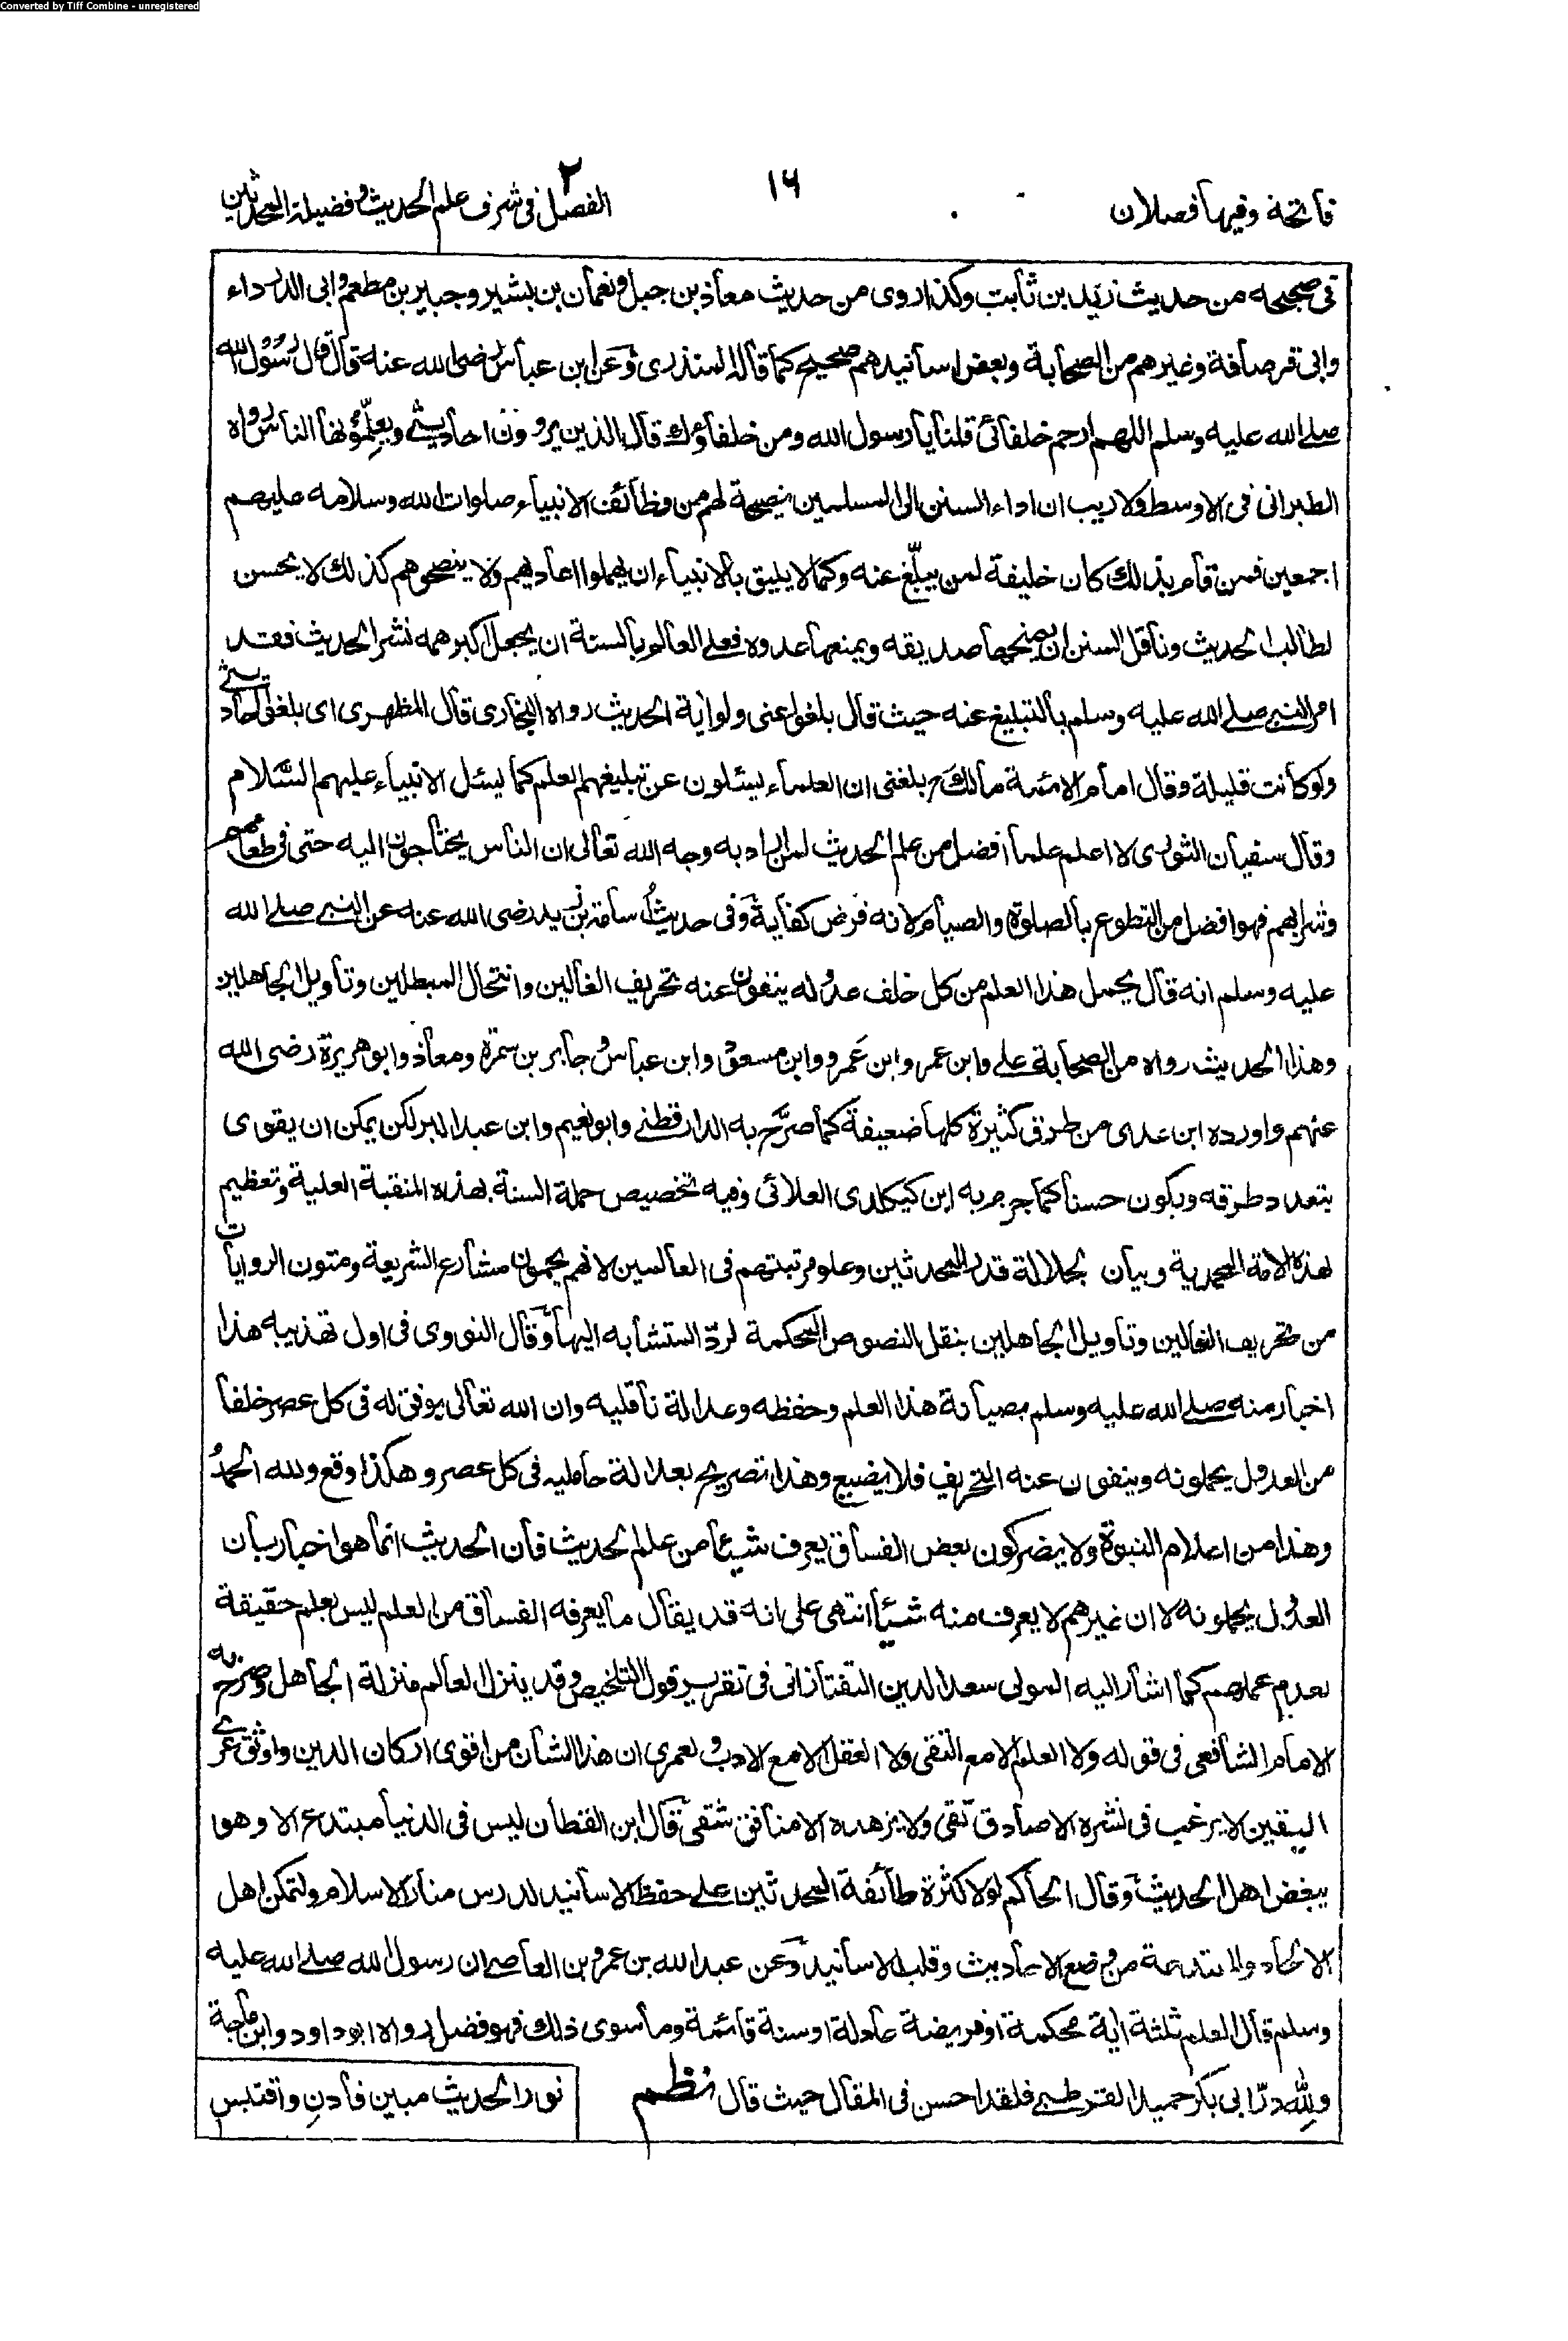 Converted by Tiff Combine - unregistered
فاتحة وفيها فصلان
١٦
الفصل ٢ فى شرف علم الحديث وفضيلة المحدثين
فى صحيحه من حديث زيد بن ثابت وكذا روى من حديث معاذ بن جبل ونعمان بن بشير وجبير بن مطعم وابى الدرداء
وابى قرصافة وغيرهم من الصحابة وبعض اسانيدهم صحيح كما قاله المنذرى وعن ابن عباس رضى الله عنه قال قال رسول الله
صلے الله عليه وسلم اللهم ارحم خلفائى قلنا يا رسول الله ومن خلفاؤك قال الذين يروون احاديثے ويعلّمونها الناس رواه
الطبرانى فى الاوسط ولاريب ان اداء السنن الى المسلمين نصيحة لهم من وظائف الانبياء صلوات الله وسلامه عليهم
اجمعين فمن قام بذلك كان خليفة لمن يبلّغ عنه وكما لا يليق بالانبياء ان يهملوا اعاديهم ولا ينصحوهم كذلك لا يحسن
لطالب الحديث وناقل السنن ان يمنحها صديقه ويمنعها عدوه فعلے العالم بالسنة ان يجعل اكبر همه نشر الحديث فقد
امر النبى صلے الله عليه وسلم بالتبليغ عنه حيث قال بلغوا عنى ولو اية الحديث رواه البخارى قال المظهرى اى بلغوا احاديثے
ولو كانت قليلة وقال امام الائمة مالكؒ بلغنى ان العلماء يسئلون عن تبليغهم العلم كما يسئل الانبياء عليهم السَّلام
وقال سفيان الثورى لا اعلم علما افضل من علم الحديث لمن اراد به وجه الله تعالى ان الناس يحتاجون اليه حتى فى طعامهم
وشرابهم فهو افضل من التطوع بالصلوة والصيام لانه فرض كفاية وفى حديث اسامة بن زيد رضى الله عنه عن النبى صلے الله
عليه وسلم انه قال يحمل هذا العلم من كل خلف عدوله ينفون عنه تحريف الغالين وانتحال المبطلين وتاويل الجاهلين
وهذا الحديث رواه من الصحابة علے وابن عمر وابن عَمرو وابن مسعود وابن عباس وجابر بن سمرة ومعاذ وابو هريرة رضى الله
عنهم واورده ابن عدى من طرق كثيرة كلها ضعيفة كما صرَّح به الدارقطنے وابو نعيم وابن عبد البر لكن يمكن ان يقوى
بتعدد طرقه ويكون حسنا كما جزم به ابن كيكلدى العلائى وفيه تخصيص حملة السنة بهذه المنقبة العلية وتعظيم
لهذه الامة المحمدية وبيان لجلالة قدر المحدثين وعلو مرتبتهم فى العالمين لانهم يحمون مشارع الشريعة ومتون الروايات
من تحريف الغالين وتاويل الجاهلين بنقل النصوص المحكمة لردّ المتشابه اليها وقال النووى فى اول تهذيبه هذا
اخبار منه صلے الله عليه وسلم بصيانة هذا العلم وحفظه وعدالة ناقليه وان الله تعالى يوفق له فى كل عصر خلفا
من العدول يحملونه وينفون عنه التحريف فلا يضيع وهذا تصريح بعدالة حامليه فى كل عصر وهكذا وقع ولله الحمدُ
وهذا من اعلام النبوة ولا يضر كون بعض الفساق يعرف شيئا من علم الحديث فان الحديث انما هو اخبار بان
العدول يحملونه لا ان غيرهم لا يعرف منه شيئا انتهى على انه قد يقال ما يعرفه الفساق من العلم ليس بعلم حقيقة
لعدم عملهم كما اشار اليه المولى سعد الدين التفتازانى فى تقرير قول التلخيص وقد ينزل العالم منزلة الجاهل وصرح به
الامام الشافعى فى قوله ولا العلم الا مع التقى ولا العقل الا مع الادب ولعمرى ان هذا الشان من اقوى اركان الدين واوثق عرے
اليقين لا يرغب فى نشره الا صادق تقى ولا يزهده الا منافق شقى قال ابن القطان ليس فى الدنيا مبتدع الا وهو
يبغض اهل الحديث وقال الحاكم لولا كثرة طائفة المحدثين علے حفظ الاسانيد لدرس منار الاسلام ولتمكن اهل
الالحاد والمبتدعة من وضع الاحاديث وقلب الاسانيد وعن عبد الله بن عمرو بن العاصے ان رسول الله صلے الله عليه
وسلم قال العلم ثلثة اية محكمة او فريضة عادلة او سنة قائمة وما سوى ذلك فهو فضل رواه ابو داود وابن ماجة
ولِلّٰه درّ ابى بكر حميد القرطبے فلقد احسن فى المقال حيث قال نظم
نور الحديث مبين فادنِ واقتبس